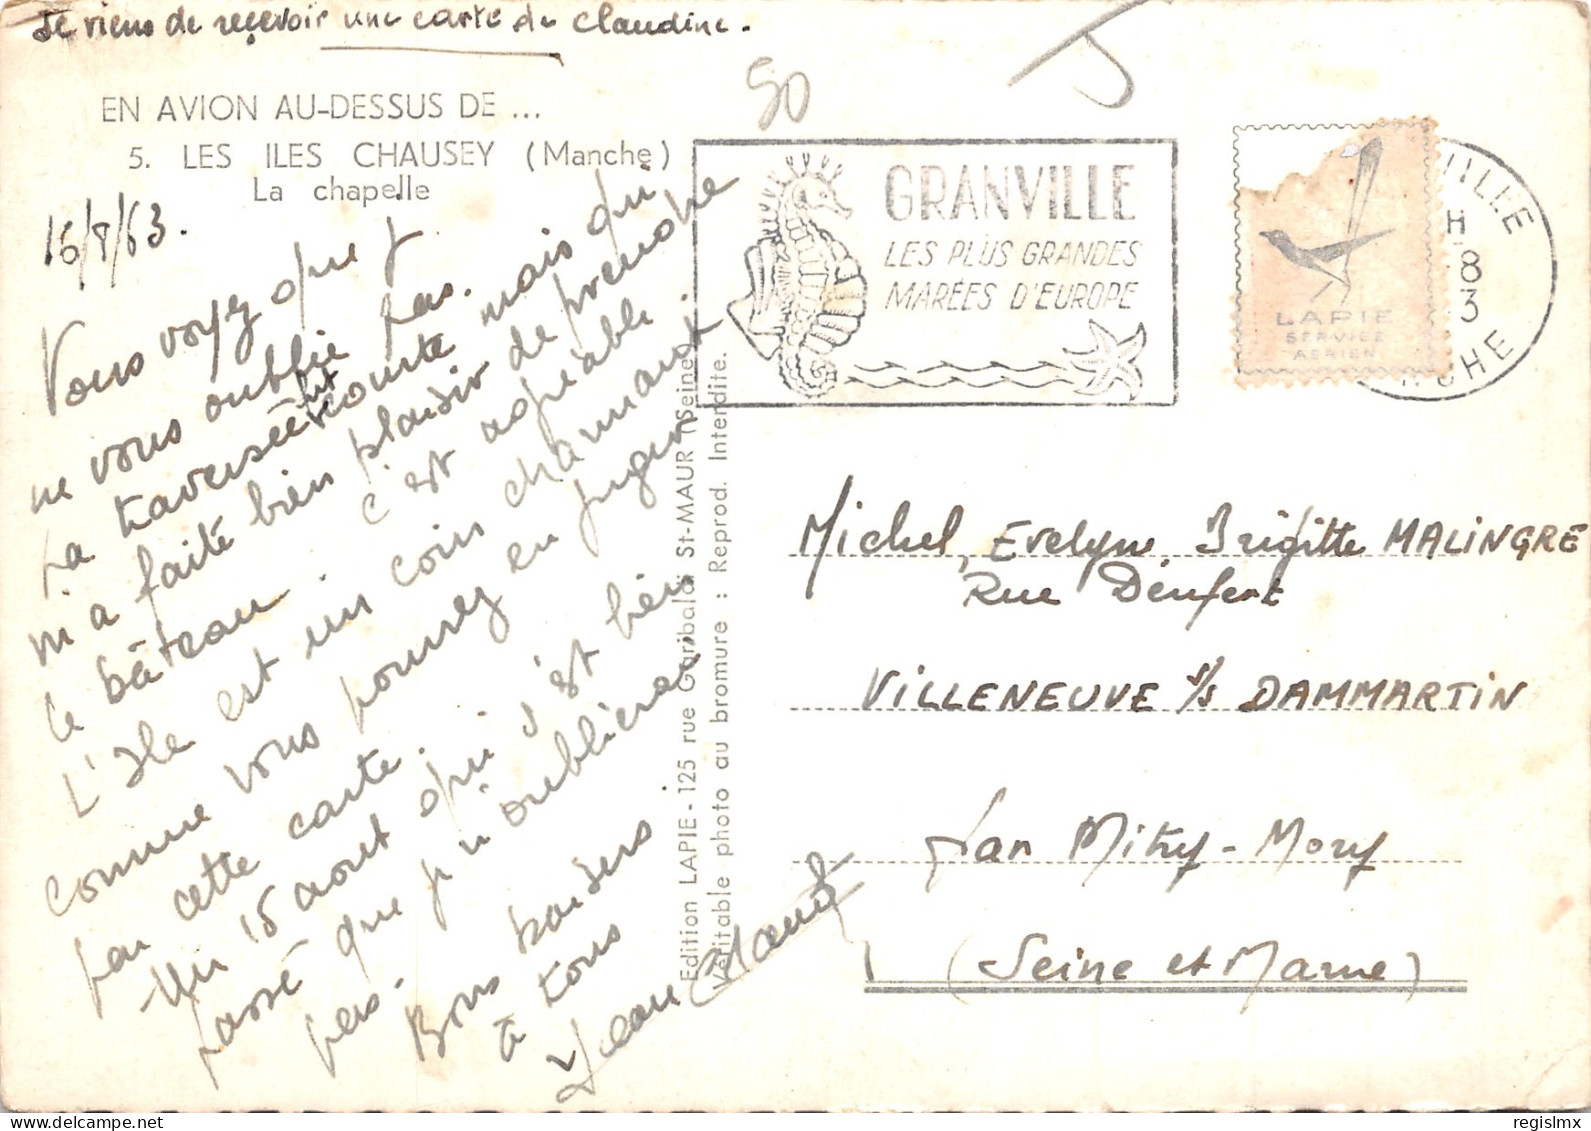 Je viens de reçevoir une carte de Claudine.
EN AVION AU-DESSUS DE ...
5. LES ILES CHAUSEY (Manche)
La chapelle
16/8/63.
Vous voyez que j
ne vous oublie pas.
La traversée fut courte mais qui
m'a faite bien plaisir de prendre
le bâteau c'est agréable.
L'Ile est un coin charmant
comme vous pourrez en juger
par cette carte.
Un 15 aout qui s'est bien
passé que j' n'oublierai
pas.
Bons baisers
à tous
Jean
Edition LAPIE - 125 rue Garibaldi St-MAUR (Seine)
Véritable photo au bromure : Reprod. Interdite.
50
GRANVILLE
LES PLUS GRANDES
MARÉES D'EUROPE
LAPIE
SERVICE
AERIEN
VILLE
H
8
3
CHE
Michel, Evelyne Brigitte MALINGRE
Rue Denfert
VILLENEUVE s/s DAMMARTIN
par Mitry-Mory
(Seine et Marne)
regislmx